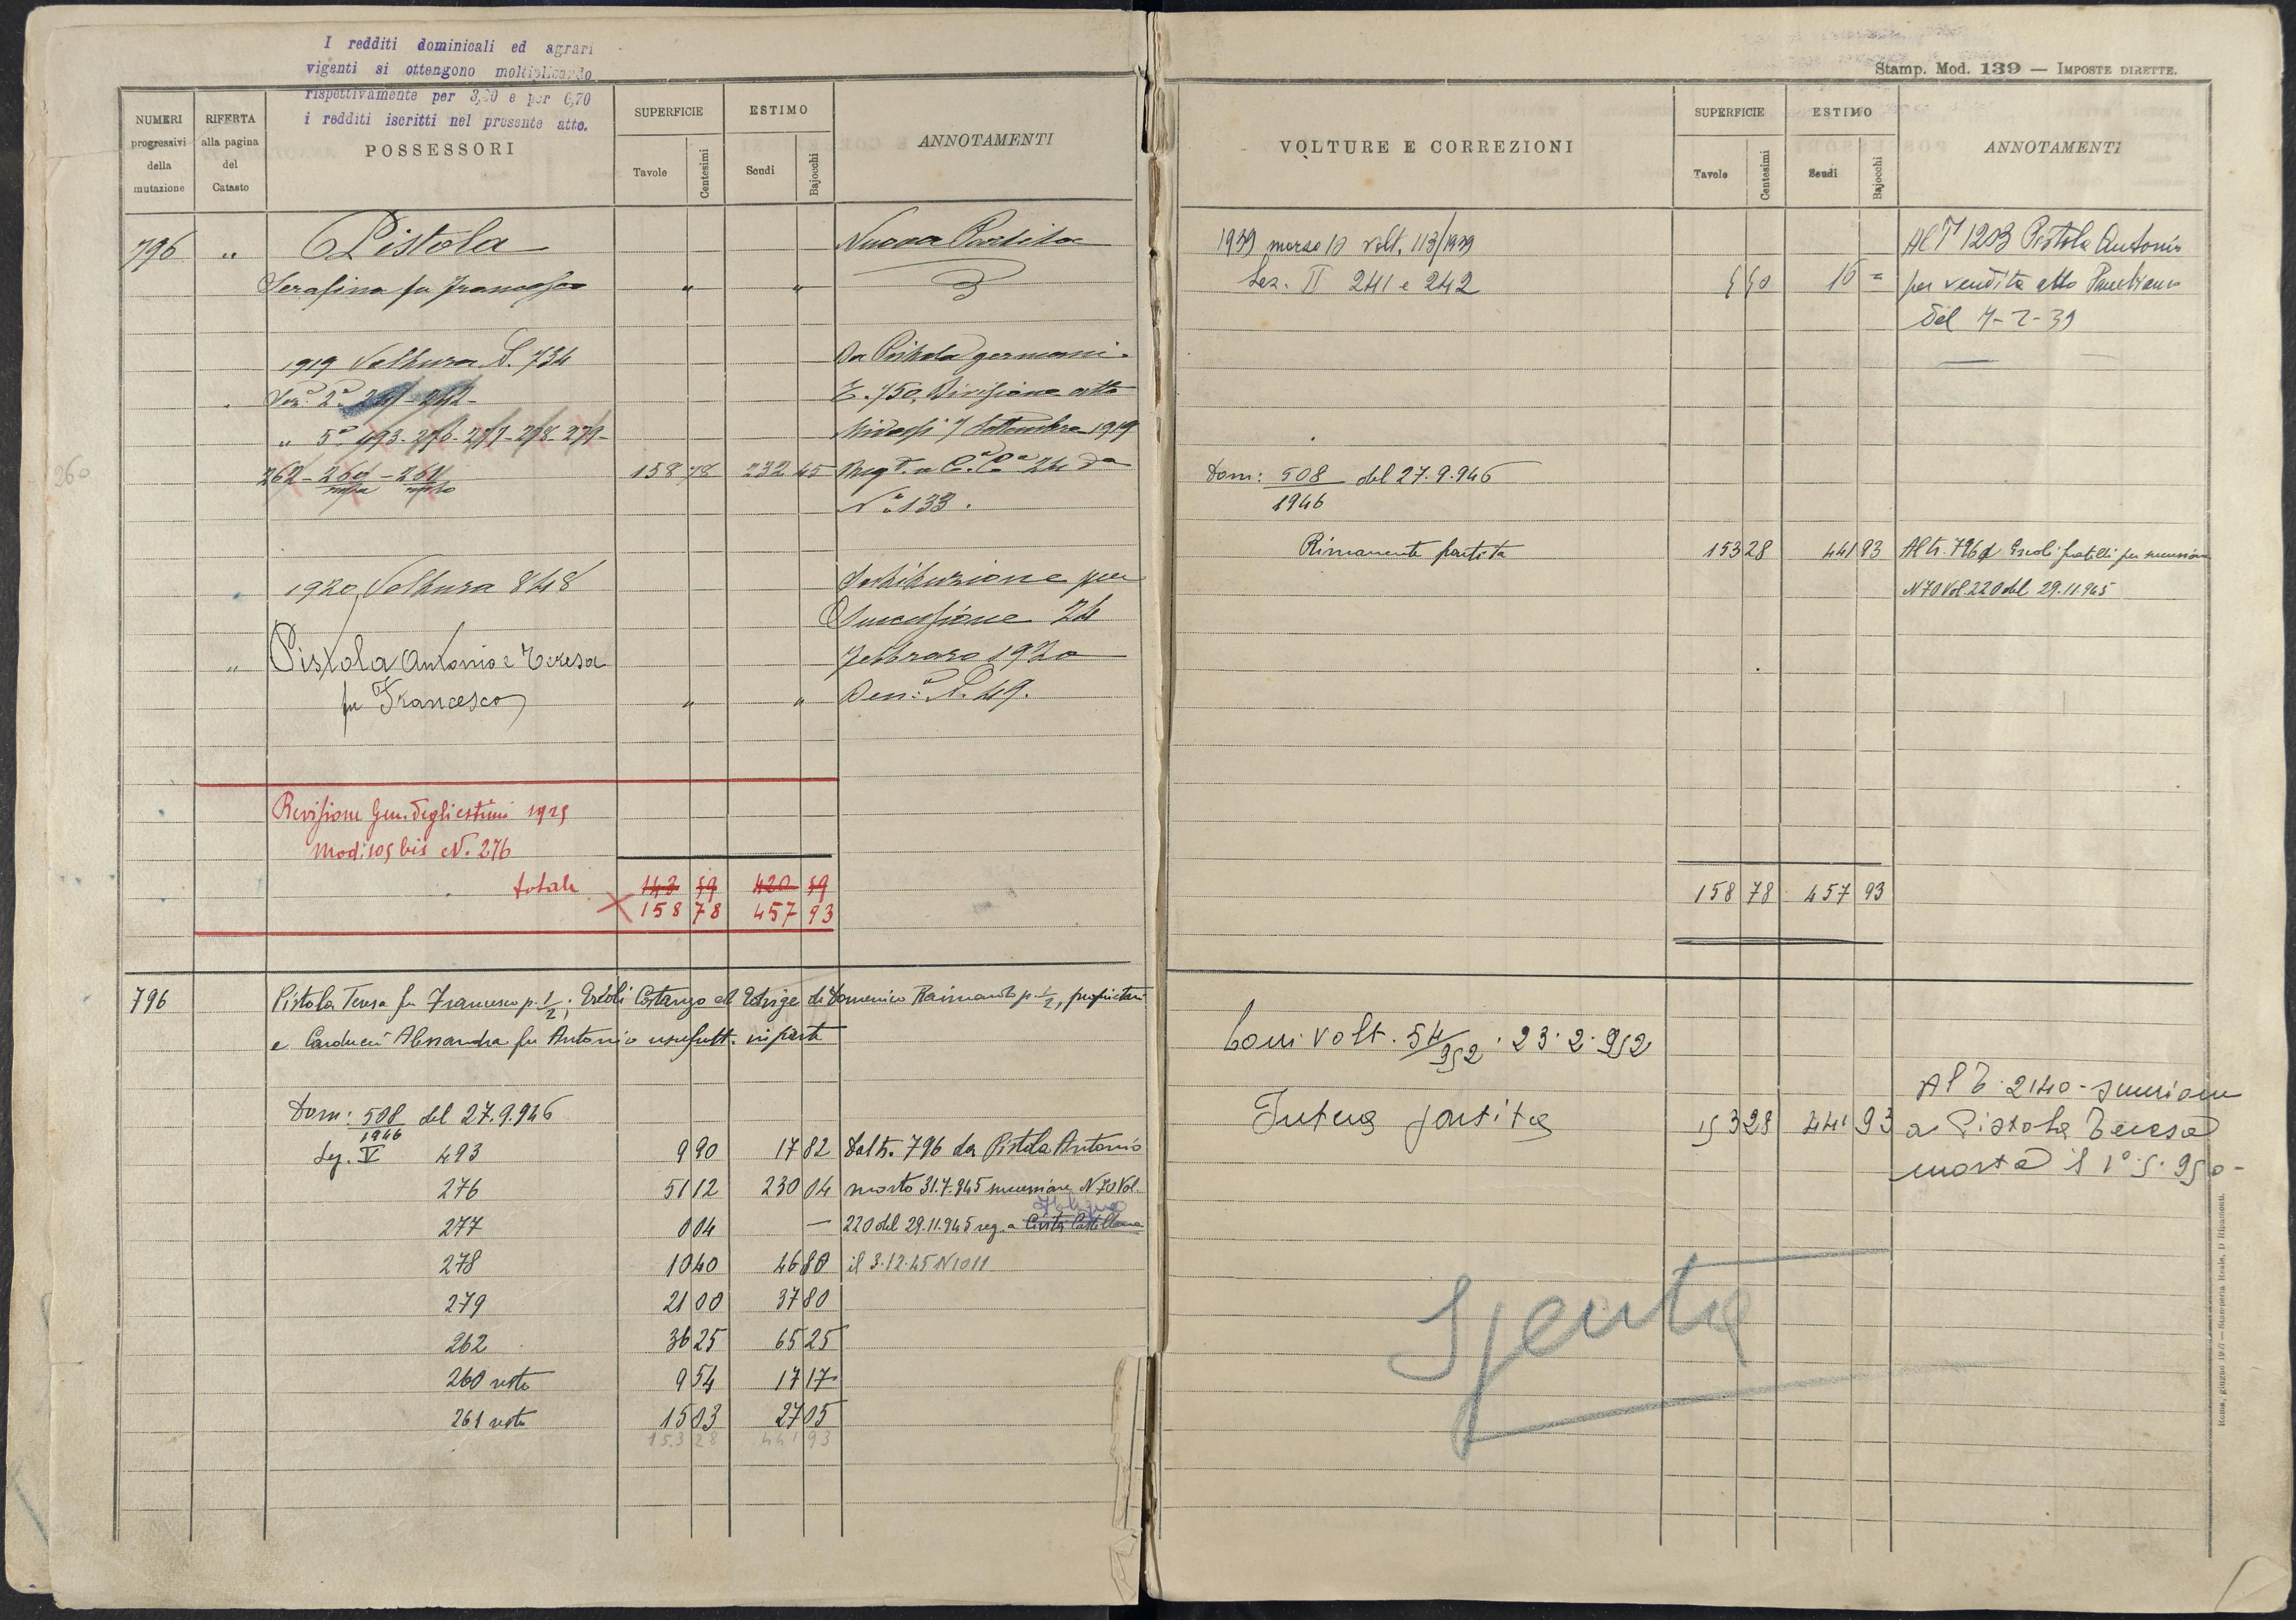 I redditi dominicali ed agrari
vigenti si ottengono moltiplicando
rispettivamente per 3,20 e per 0,70
i redditi iscritti nel presente atto.
NUMERI progressivi della mutazione
RIFERTA alla pagina del Catasto
POSSESSORI
SUPERFICIE
Tavole Centesimi
ESTIMO
Scudi Bajocchi
ANNOTAMENTI
796 „ Pistola Nuova Partita
Serafina fu Francesco „ „
1919 Voltura N. 734 Da Pistola germani
Sez. 2ª 241-242- T. 750, Divisione atto
„ 5ª 493-276-277-278-279- 7 Settembre 1919
262-260-261 158 78 232 45 Reg.
resto resto Nº 133.
1920 Voltura 848 per
Successione 24
„ Pistola Antonio e Teresa Febbraro 1920
fu Francesco „ „ Den: N. 49.
Revisione Gen. degli estimi 1925
Mod: 105 bis N. 276
totale 143 59 420 59
158 78 457 93
796 Pistola Teresa fu Francesco p. 1/2; Ercoli Costanzo ed Edvige di Domenico Raimondo p. 1/2, proprietari
e Carducci Alessandra fu Antonio usufrutt. in parte
Dom: 508/1946 del 27.9.946
Sez. V 493 9 90 17 82 Dal tr. 796 da Pistola Antonio
276 51 12 230 04 morto 31.7.945 successione N 70 Vol.
277 0 04 — 220 del 29.11.945 reg. a Civita Castellana
278 10 40 46 80 il 3.12.45 N 1011
279 21 00 37 80
262 36 25 65 25
260 resto 9 54 17 17
261 resto 15 03 27 05
153 28 441 93
260
Stamp. Mod. 139 — IMPOSTE DIRETTE.
VOLTURE E CORREZIONI
SUPERFICIE
Tavole Centesimi
ESTIMO
Scudi Bajocchi
ANNOTAMENTI
1939 marzo 10 Volt. 113/1939 Al T 1203 Pistola Antonio
Sez. II 241 e 242 5 50 16 = per vendita atto
del 7-2-39
Dom: 508/1946 del 27.9.946
Rimanente partita 153 28 441 93 Al tr. 796 Ercoli fratelli per successione
N 70 Vol. 220 del 29.11.945
158 78 457 93
Volt. 54/952 . 23.2.952
Al T. 2140 - successione
Intera partita 153 28 441 93 a Pistola Teresa
morta il 1º.5.950-
Spenta
Roma, giugno 1917 — Stamperia Reale, D Ripamonti.